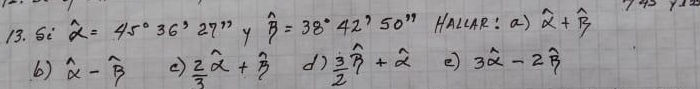 13. Si α̂ = 45° 36' 27" y β̂ = 38° 42' 50" HALLAR: a) α̂ + β̂
b) α̂ - β̂ c) 2/3 α̂ + β̂ d) 3/2 β̂ + α̂ e) 3α̂ - 2β̂